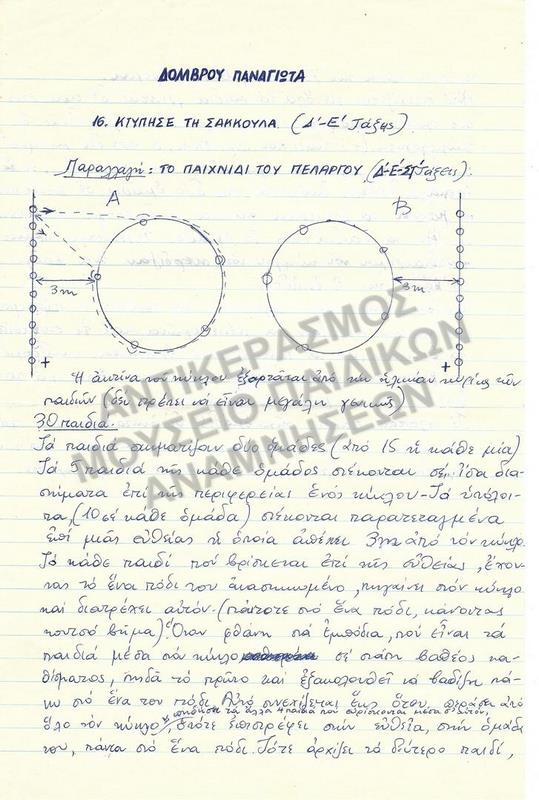 ΔΟΜΒΡΟΥ ΠΑΝΑΓΙΩΤΑ
16. ΚΤΥΠΗΣΕ ΤΗ ΣΑΚΚΟΥΛΑ (Δ'-Ε' Τάξης)
Παραλλαγή: ΤΟ ΠΑΙΧΝΙΔΙ ΤΟΥ ΠΕΛΑΡΓΟΥ (Δ'-Ε'-ΣΤ' Τάξεις).
A B
3m 3m
+ +
Ἡ ἀκτίνα τοῦ κύκλου ἐξαρτᾶται ἀπό τήν ἡλικίαν κυρίως τῶν
παιδιῶν (δέν πρέπει νά εἶναι μεγάλη γενικῶς)
30 παιδιά.
Τά παιδιά σχηματίζουν δύο ὁμάδες (ἀπό 15 ἡ κάθε μία)
Τά παιδιά τῆς κάθε ὁμάδος στέκονται σέ ἴσα δια-
στήματα ἐπί τῆς περιφερείας ἑνός κύκλου - Τά ὑπόλοι-
πα, (10 σέ κάθε ὁμάδα) στέκονται παρατεταγμένα
ἐπί μιᾶς εὐθείας ἡ ὁποία ἀπέχει 3m ἀπό τόν κύκλο.
Τό κάθε παιδί πού βρίσκεται ἐπί τῆς εὐθείας, ἔχον-
τας τό ἕνα πόδι του ἀνασηκωμένο, πηγαίνει στόν κύκλο
καί διατρέχει αὐτόν. (πάντοτε στό ἕνα πόδι, κάνοντας
κουτσό βῆμα). Ὅταν φθάνη στά ἐμπόδια, πού εἶναι τά
παιδιά μέσα στό κύκλο σέ στάση βαθέος κα-
θίσματος, πηδᾶ τό πρῶτο καί ἐξακολουθεῖ νά βαδίζη πά-
νω στό ἕνα του πόδι. Αὐτό συνεχίζεται ἕως ὅτου, περάσει ἀπό
πηδήσει τά ἄλλα παιδιά πού εὑρίσκονται μέσα σ' αὐτόν,
ὅλο τόν κύκλο, ὁπότε ἐπιστρέφει στήν εὐθεῖα, στήν ὁμάδα
του, πάντα στό ἕνα πόδι. Τότε ἀρχίζει τό δεύτερο παιδί,
ΑΝΤΙΚΕΡΑΣΜΟΣ
ΜΟΥΣΕΙΟ ΠΑΙΔΙΚΩΝ
ΑΝΑΜΝΗΣΕΩΝ